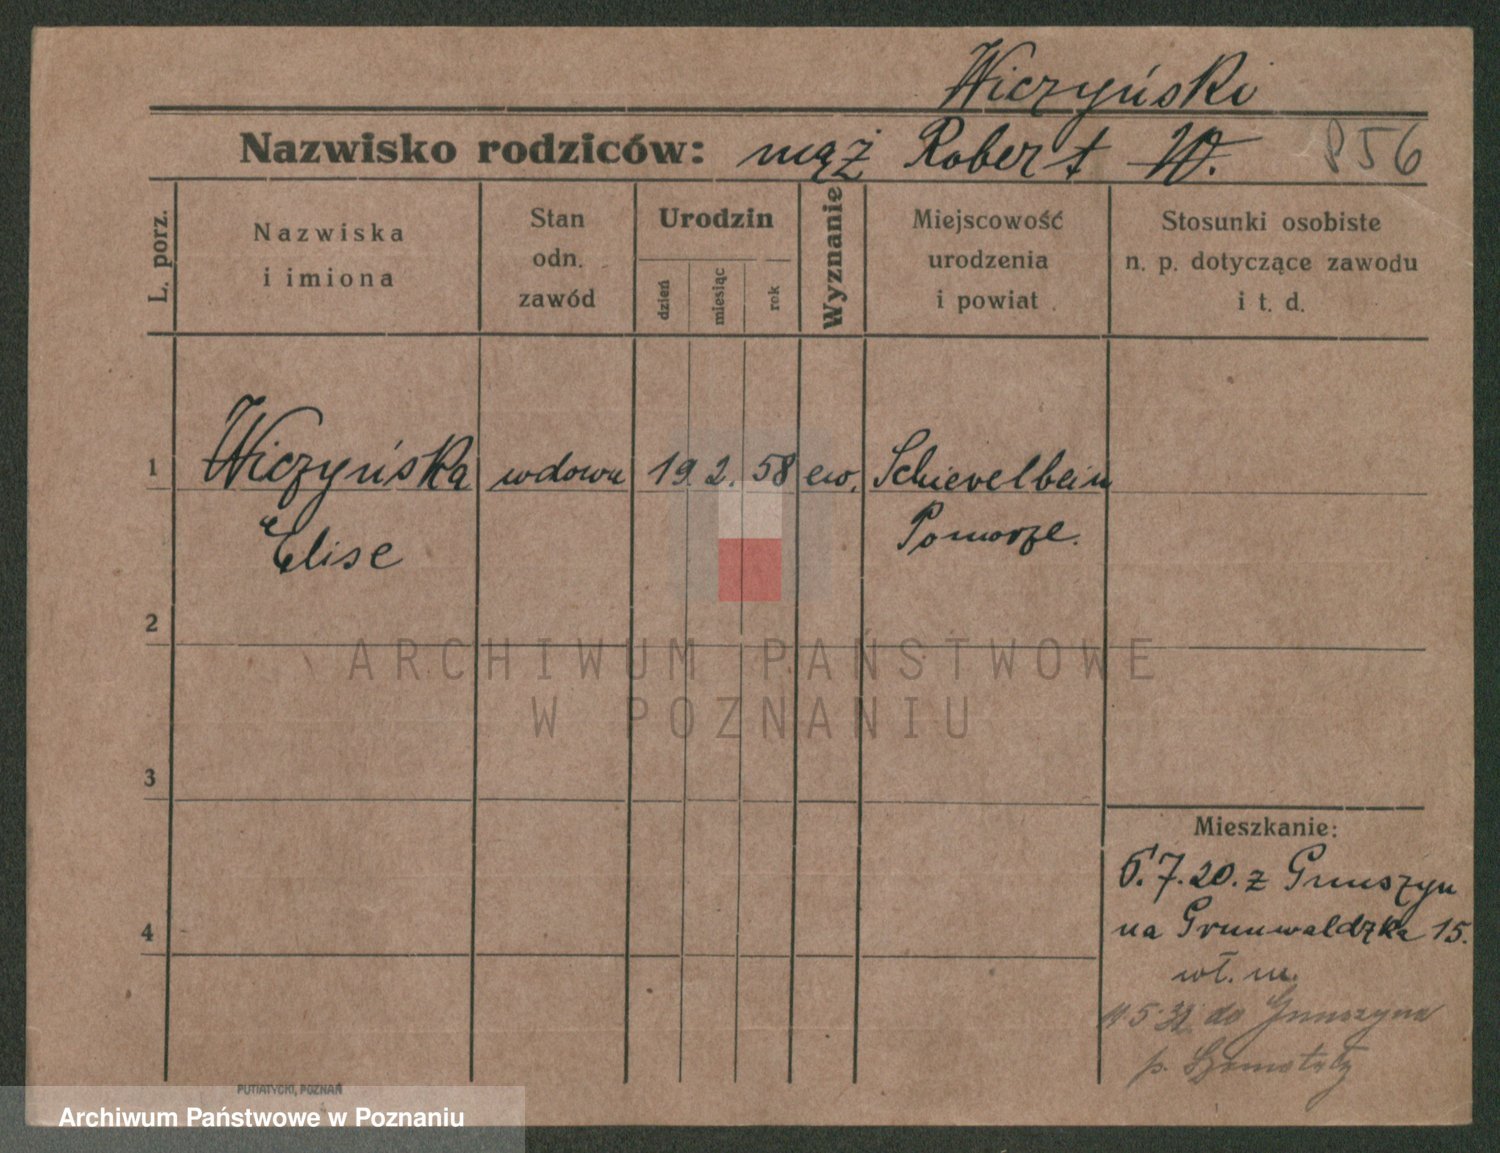 Wiczyński
Nazwisko rodziców: mąż Robert W. 856
L. porz.
Nazwiska
i imiona
Stan
odn.
zawód
Urodzin
dzień
miesiąc
rok
Wyznanie
Miejscowość
urodzenia
i powiat
Stosunki osobiste
n. p. dotyczące zawodu
i t. d.
1 Wiczyńska wdowa 19 2. 58 ew. Schievelbein
Elise Pomorze.
2
3
4
ARCHIWUM PAŃSTWOWE
W POZNANIU
Mieszkanie:
6.7.20. z Gruszyn
na Grunwaldzka 15.
wł. m.
5. 32 do Gruszyna
p. Szamotuły
PUTIATYCKI, POZNAŃ
Archiwum Państwowe w Poznaniu